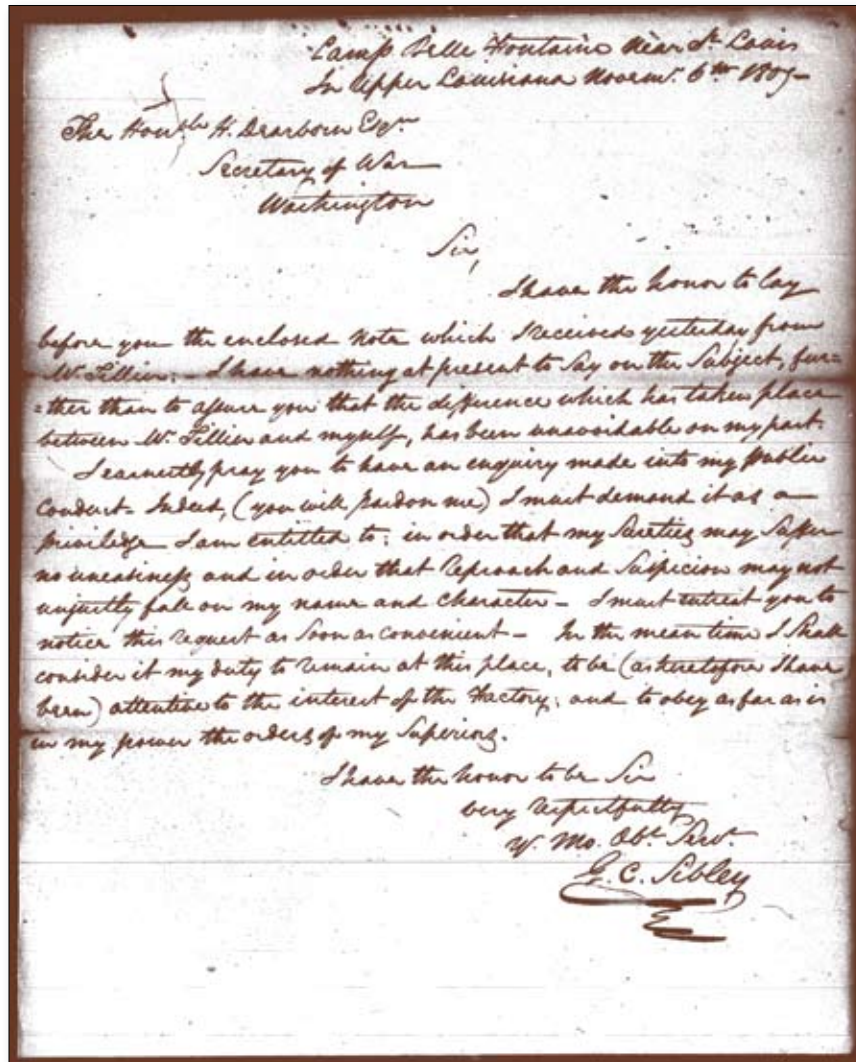 Camp Belle Fontaine Near St. Louis
In Upper Louisiana Novemr. 6th 1807-
The Honble H. Dearborn Esqr
Secretary of War
Washington
Sir,
I have the honor to lay
before you the enclosed note which I received yesterday from
Mr. Tillier. - I have nothing at present to Say on the Subject, fur=
=ther than to assure you that the difference which has taken place
between Mr. Tillier and myself, has been unavoidable on my part.
I earnestly pray you to have an enquiry made into my public
Conduct - Indeed, (you will pardon me) I must demand it as a
privilege I am entitled to; in order that my Sureties may Suffer
no uneasiness and in order that Reproach and Suspicion may not
unjustly fall on my name and Character - I must entreat you to
notice this request as Soon as convenient - In the mean time I Shall
consider it my duty to remain at this place, to be (as heretofore I have
been) attentive to the interest of the Factory; and to obey as far as is
in my power the orders of my Superiors.
I have the honor to be Sir
very respectfully
Yr. Mo. Obt. Servt.
G. C. Sibley